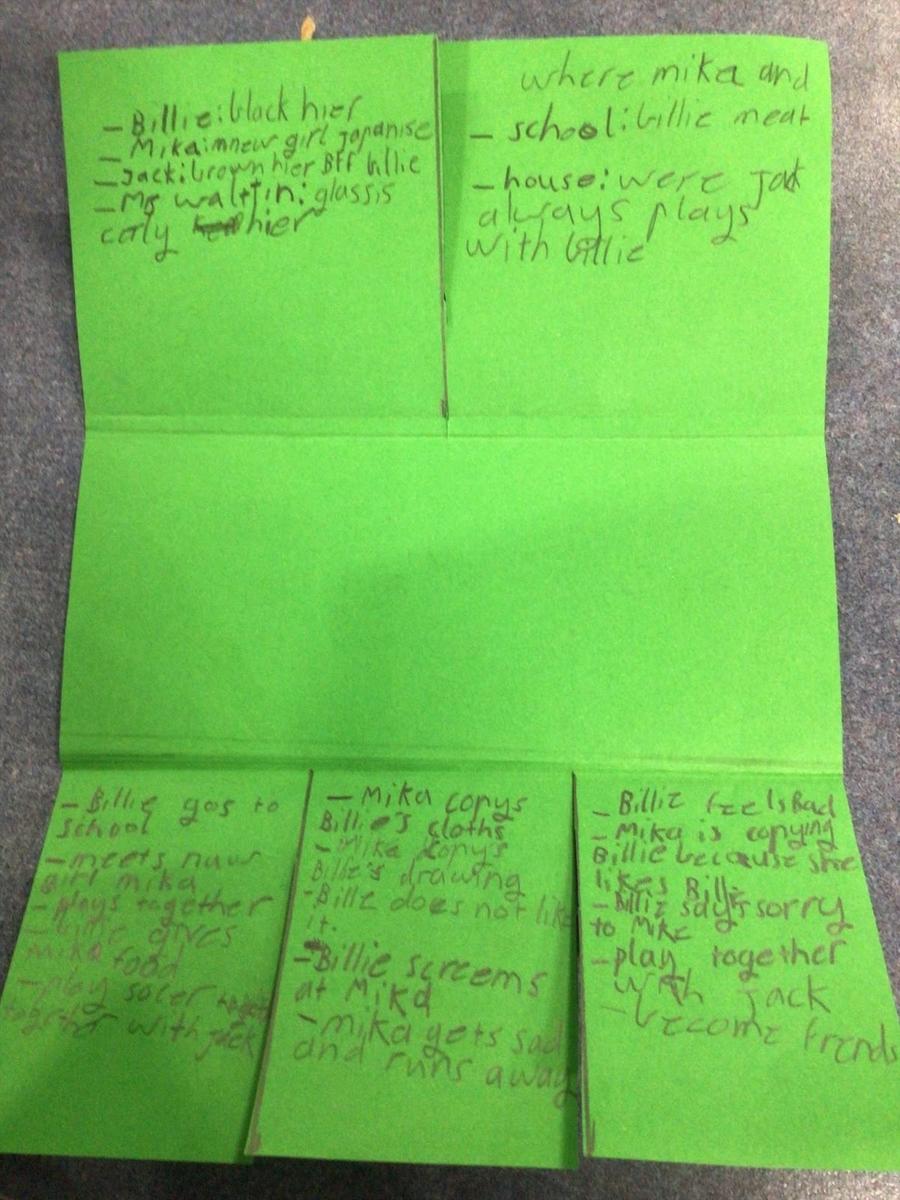 - Billie: black hier
- Mika: new girl japanise
- Jack: brown hier BFF billie
- Ms waltfin: glassis
caly hier
where mika and
- school: billie meat
- house: were jack
always plays
with billie
- Billie gos to
school
- meets nuw
girl mika
- plays together
- billie gives
mika food
- play socer
together with jack
- Mika copys
Billie's cloths
- Mika copys
Billie's drawing
- Billie does not like
it.
- Billie screems
at Mika
- mika gets sad
and runs away
- Billie feels Bad
- Mika is copying
Billie because she
likes Billie
- Billie says sorry
to Mike
- play together
with jack
- become frends